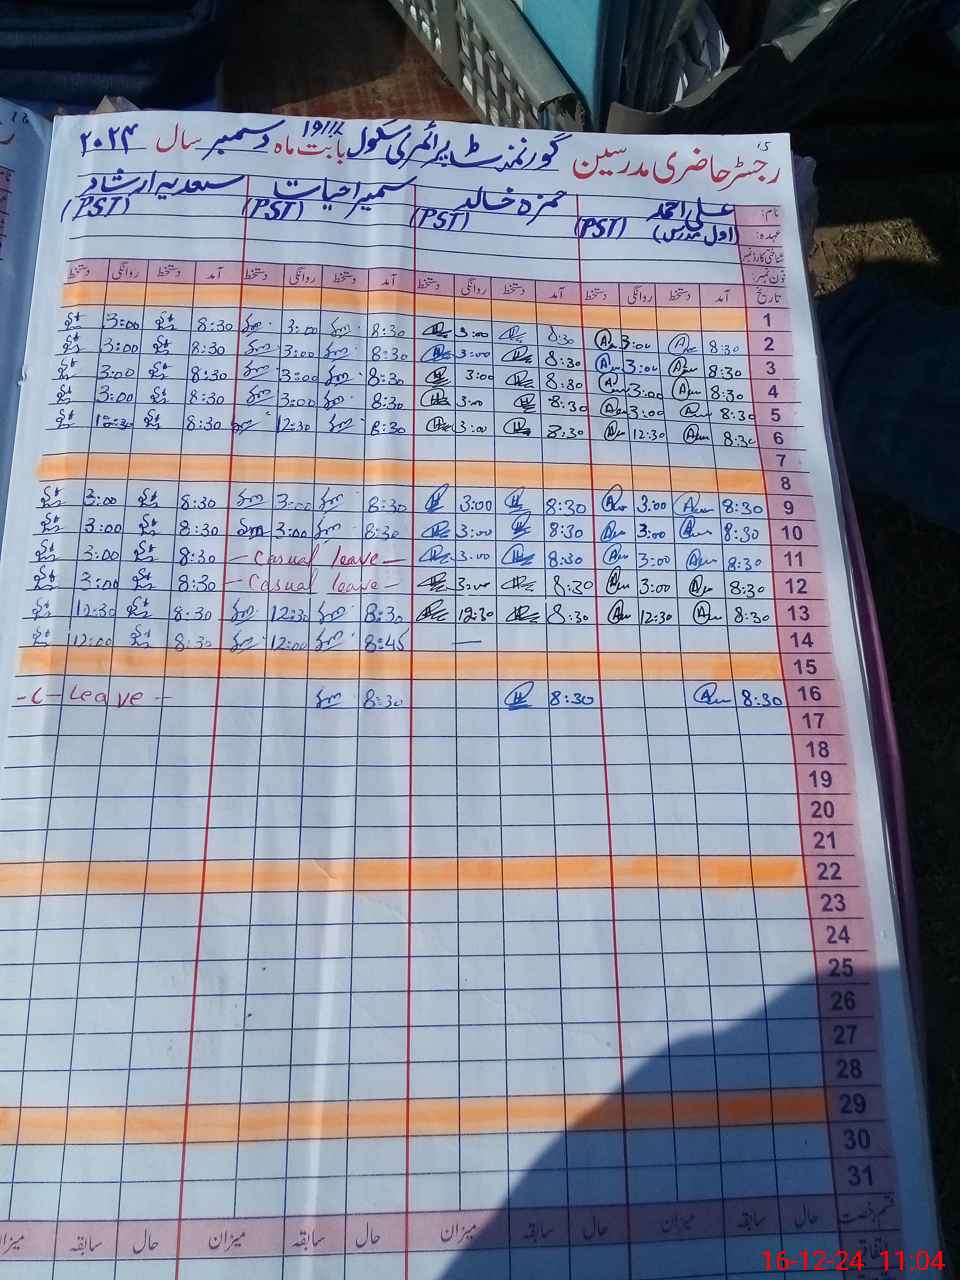 رجسٹر حاضری مدرسین گورنمنٹ پرائمری سکول 19/11L بابت ماہ دسمبر سال ۲۰۲۴
نام: علی احمد حمزہ خالد سمیرا حیات سعدیہ ارشاد
عہدہ: (اول مدرس) (PST) (PST) (PST) (PST)
شناختی کارڈ نمبر
فون نمبر:
تاریخ آمد دستخط روانگی دستخط آمد دستخط روانگی دستخط آمد دستخط روانگی دستخط آمد دستخط روانگی دستخط
1
2 8:30 3:00 8:30 3:00 8:30 3:00 8:30 3:00
3 8:30 3:00 8:30 3:00 8:30 3:00 8:30 3:00
4 8:30 3:00 8:30 3:00 8:30 3:00 8:30 3:00
5 8:30 3:00 8:30 3:00 8:30 3:00 8:30 3:00
6 8:30 12:30 8:30 3:00 8:30 12:30 8:30 12:30
7
8
9 8:30 3:00 8:30 3:00 8:30 3:00 8:30 3:00
10 8:30 3:00 8:30 3:00 8:30 3:00 8:30 3:00
11 8:30 3:00 8:30 3:00 – Casual leave – 8:30 3:00
12 8:30 3:00 8:30 3:00 – Casual leave – 8:30 3:00
13 8:30 12:30 8:30 12:30 8:30 12:30 8:30 12:30
14 — 8:45 12:00 8:30 12:00
15
16 8:30 8:30 8:30 – C – Leave –
17
18
19
20
21
22
23
24
25
26
27
28
29
30
31
قسم رخصت حال سابقہ میزان حال سابقہ میزان حال سابقہ میزان حال سابقہ میزان
اتفاقیہ
16-12-24 11:04